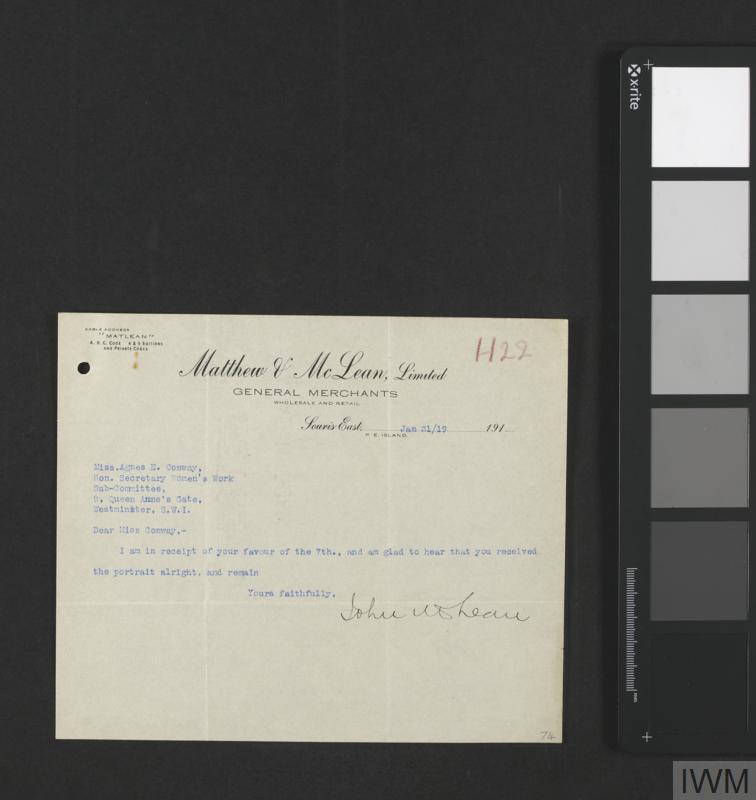 CABLE ADDRESS
"MATLEAN"
A. B. C. CODE 4 & 5 EDITIONS
AND PRIVATE CODES
H22
Matthew & McLean, Limited
GENERAL MERCHANTS
WHOLESALE AND RETAIL
Souris East, Jan 31/19 191
P. E. ISLAND.
Miss.Agnes E. Conway,
Hon. Secretary Women's Work
Sub-Committee,
9, Queen Anne's Gate,
Westminster, S.W.I.
Dear Miss Conway,-
I am in receipt of your favour of the 7th., and am glad to hear that you received
the portrait alright, and remain
Yours faithfully,
John McLean
74
x-rite
mm
IWM